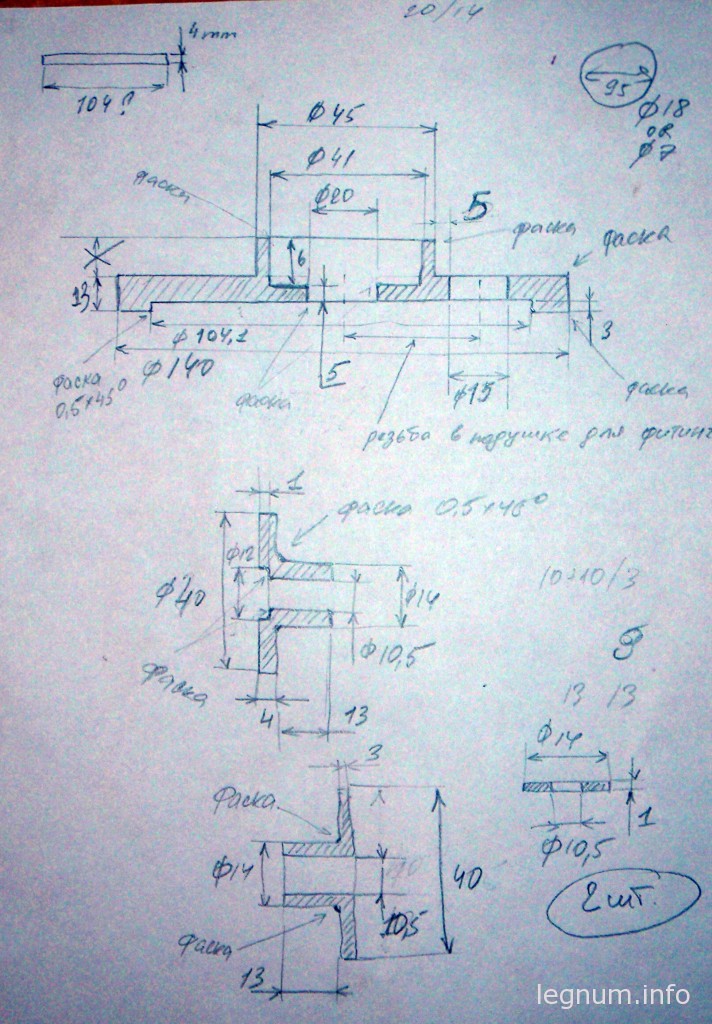 20/14
4mm
104?
95
Ф18
or
Ф7
Ф45
Ф41
Ф20
фаска
5
фаска
фаска
6
13
3
Ф104,1
Ф140
фаска
0,5×45°
фаска
5
Ф15
фаска
резьба в подушке для фитинг
1
фаска 0,5×45°
Ф12
Ф40
Ф14
Ф10,5
10+10/3
фаска
4
13
13 13
Ф14
1
Ф10,5
2 шт.
3
Фаска
Ф14
40
10,5
фаска
13
legnum.info